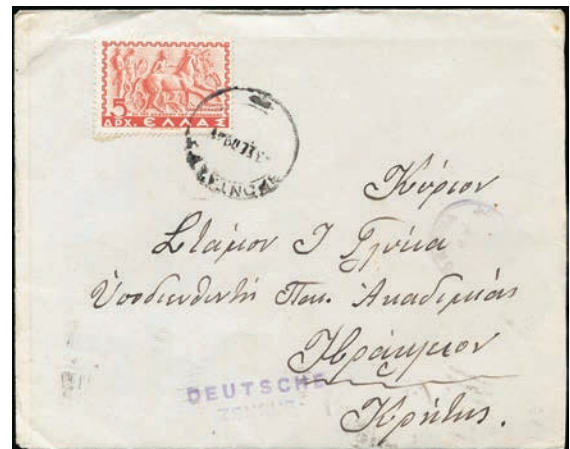 5
ΔΡΧ. ΕΛΛΑΣ
Κύριον
Σταμον Ι Γλύκα
Ὑποδιευθυντὴ Παι. Ἀκαδημίας
Ἡράκλειον
Κρήτης.
DEUTSCHE